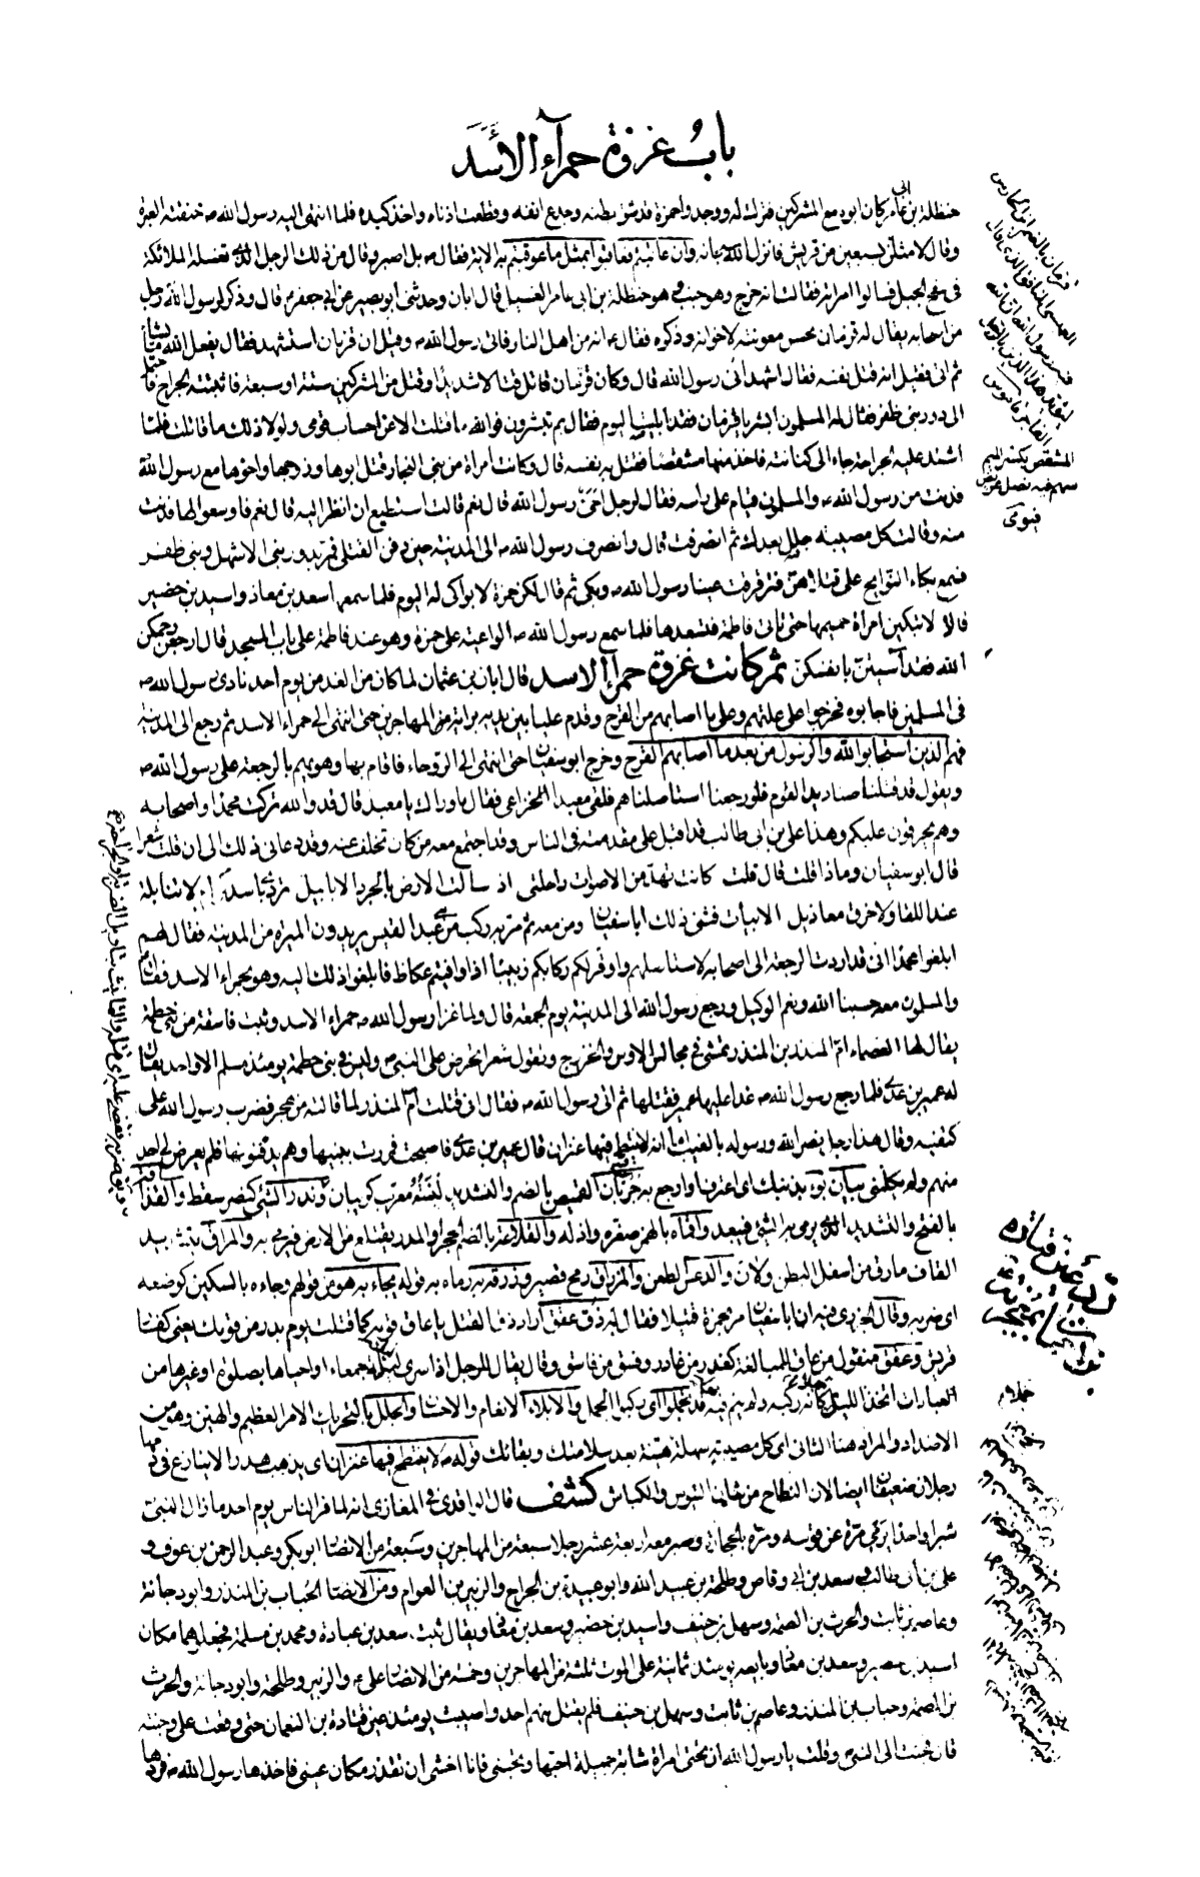 باب غزوة حمرآء الأسد
حنظلة بن ابى عامر كان ابوه مع المشركين فترك له ووجدوا حمزة قد شق بطنه وجدع انفه وقطعت اذناه واخذ كبده فلما انتهى اليه رسول الله ص خنقته العبرة
وقال لامثلن بسبعين من قريش فانزل الله سبحانه وان عاقبتم فعاقبوا بمثل ما عوقبتم به الاية فقال ص بل اصبر وقال من ذلك الرجل الذى تغسله الملائكة
فى سفح الجبل فسالوا امراته فقالت انه خرج وهو جنب وهو حنظلة بن ابى عامر الغسيل قال ابان وحدثنى ابو بصير عن ابى جعفر ع قال وذكر لرسول الله رجل
من اصحابه يقال له قزمان بحسن معونته لاخوانه وذكوه فقال ع انه من اهل النار فاتى رسول الله ص وقيل ان قزمان استشهد فقال يفعل الله ما يشآء
ثم اتى فقيل انه قتل نفسه فقال اشهد انى رسول الله قال وكان قزمان قاتل قتالا شديدا وقتل من المشركين ستة او سبعة فاثبتته الجراح فاحتمل
الى دور بنى ظفر فقال له المسلمون ابشر يا قزمان فقد ابليت اليوم فقال بم تبشرون فوالله ما قتلت الا عن احساب قومى ولولا ذلك ما قاتلت فلما
اشتد عليه الجراحة جاء الى كنانته فاخذ منها مشقصا فقتل به نفسه قال وكانت امرأة من بنى النجار قتل ابوها وزوجها واخوها مع رسول الله
فدنت من رسول الله ص والمسلمون قيام على راسه فقال لرجل احى رسول الله قال نعم قالت استطيع ان انظر اليه قال نعم فاوسعوا لها فدنت
منه وقالت كل مصيبة جلل بعدك ثم انصرفت قال وانصرف رسول الله ص الى المدينة حين دفن القتلى فمر بدور بنى الاشهل وبنى ظفر
فسمع بكاء النوائح على قتلاهن فترقرقت عينا رسول الله ص وبكى ثم قال لكن حمزة لا بواكى له اليوم فلما سمعها سعد بن معاذ واسيد بن حضير
قالا لا تبكين امرأة حميمها حتى تاتى فاطمة فتسعدها فلما سمع رسول الله ص الواعية على حمزة وهو عند فاطمة على باب المسجد قال ارجعن رحمكن
الله فقد آسيتن بانفسكن ثم كانت غزوة حمرآء الاسد قال ابان بن عثمان لما كان من الغد من يوم احد نادى رسول الله ص
فى المسلمين فاجابوه فخرجوا على علتهم وعلى ما اصابهم من القرح وقدم عليا بين يديه براية المهاجرين حتى انتهى الى حمراء الاسد ثم رجع الى المدينة
فهم الذين استجابوا لله والرسول من بعد ما اصابهم القرح وخرج ابو سفيان حتى انتهى الى الروحاء فاقام بها وهو يهم بالرجعة على رسول الله ص
ويقول قد قتلنا صناديد القوم فلو رجعنا استاصلناهم فلقى معبد الخزاعى فقال ما وراك يا معبد قال قد والله تركت محمدا واصحابه
وهم يحرقون عليكم وهذا على بن ابى طالب قد اقبل على مقدمته فى الناس وقد اجتمع معه من كان تخلف عنه وقد دعانى ذلك الى ان قلت شعرا
قال ابو سفيان وماذا قلت قال قلت كادت تهد من الاصوات راحلتى اذ سالت الارض بالجرد الابابيل تردى باسد لا تنابلة
عند اللقاء ولا خرق معاذيل الابيات فثنى ذلك ابا سفيان ومن معه ثم مر به ركب من عبد القيس يريدون الميرة من المدينة فقال لهم
ابلغوا محمدا انى قد اردت الرجعة الى اصحابه لاستاصلهم واوقر لكم ركابكم زبيبا اذا وافيتم عكاظ فابلغوا ذلك اليه وهو بحمراء الاسد فقال
والمسلمون معه حسبنا الله ونعم الوكيل ورجع رسول الله الى المدينة يوم الجمعة قال ولما غزا رسول الله ص حمراء الاسد وثبت فاسقة من بنى خطمة
يقال لها العصماء ام المنذر بن المنذر تمشى فى مجالس الاوس والخزرج وتقول شعرا تحرض على النبى ص وليس فى بنى خطمة يومئذ مسلم الا واحد يقال
له عمير بن عدى فلما رجع رسول الله ص غدا عليها عمير فقتلها ثم اتى رسول الله ص فقال انى قتلت ام المنذر لما قالته من هجر فضرب رسول الله على
كتفيه وقال هذا رجل نصر الله ورسوله بالغيب اما انه لا ينتطح فيها عنزان قال عمير بن عدى فاصبحت فمررت ببنيها وهم يدفنونها فلم يعرض لى احد
منهم ولم يكلمنى بيان تؤت بذنبك اى اعترفها وارجع به جربان القميص بالضم والتشديد لبنته معرب كريبان وندر الشئ كنصر سقط والقذاف
بالفتح والتشديد الذى يرمى به الشئ فيبعد واقماه بالهمز صغره واذله والقلاعة بالضم الحجر او المدر يقتلع من الارض فيرمى به والمراق بتشديد
القاف ما رق من اسفل البطن ولان والدعس الطعن والمزراق رمح قصير وزرقه به رماه به قوله يجاء به هو من قولهم وجاءه بالسكين كوضعه
اى ضربه وقال الجزرى فيه ان ابا سفيان مر بحمزة قتيلا فقال له ذق عقق اراد ذق القتل يا عاق قومه كما قتلت يوم بدر من قومك يعنى كفار
قريش وعقق منقول من عاق للمبالغة كغدر من غادر وفسق من فاسق وقال يقال للرجل اذا اسرى ليلة جمعاء او احياها بصلوة او غيرها من
العبارات اتخذ الليل جملا كانه ركبه ولم ينم فيه قد تجللوا اى ركبوا الجمل والابلاء الانعام والاحسان والجلل بالتحريك الامر العظيم والهين وهو من
الاضداد والمراد هنا الثانى اى كل مصيبة سهلة هينة بعد سلامتك وبقائك قوله ص لا ينتطح فيها عنزان اى يذهب هدرا لا ينازع فى دمها
رجلان ضعيفان ايضا لان النطاح من شان التيوس والكباش كشف قال الواقدى فى المغازى انه لما فر الناس يوم احد ما زال النبى
شبرا واحدا يرمى مرة عن قوسه ومرة بالحجارة وصبر معه اربعة عشر رجلا سبعة من المهاجرين وسبعة من الانصار ابو بكر وعبد الرحمن بن عوف و
على بن ابى طالب وسعد بن ابى وقاص وطلحة بن عبيد الله وابو عبيدة بن الجراح والزبير بن العوام ومن الانصار الحباب بن المنذر وابو دجانة
وعاصم بن ثابت والحرث بن الصمة وسهل بن حنيف واسيد بن حضير وسعد بن معاذ ويقال ثبت سعد بن عبادة ومحمد بن مسلمة فجعلوهما مكان
اسيد بن حضير وسعد بن معاذ وبايعه يومئذ ثمانية على الموت ثلثة من المهاجرين وخمسة من الانصار على ع والزبير وطلحة وابو دجانة والحرث
بن الصمة وحباب بن المنذر وعاصم بن ثابت وسهل بن حنيف فلم يقتل منهم احد واصيبت يومئذ عين قتادة بن النعمان حتى وقعت على وجنته
قال فجئت الى النبى وقلت يا رسول الله ان تحتى امراة شابة جميلة احبها وتحبنى فانا اخشى ان تقذر مكان عينى فاخذها رسول الله ص فردها
قزمان بالضم
المشقص بكسر الميم
سهم فيه نصل عريض
نبوى
رد عين قتادة
جملا م